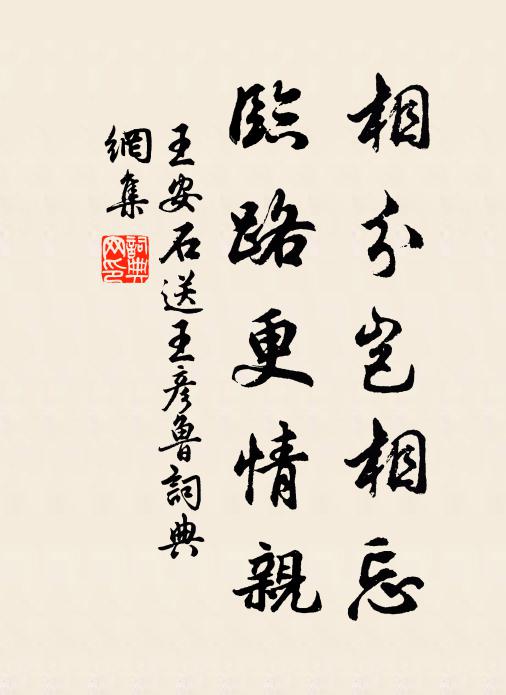 相分豈相忘
臨路更情親
王安石送王彥魯詞典
網集
詞典
网印